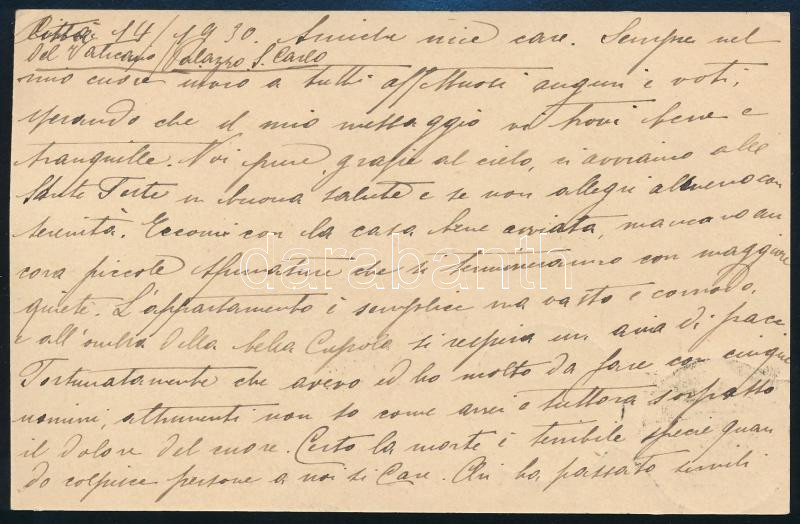 Città 14/1930. Amiche mie care. Sempre nel
del Vaticano / Palazzo S. Carlo
mio cuore invio a tutti affettuosi auguri e voti,
sperando che il mio messaggio vi trovi bene e
tranquille. Noi pure, grazie al cielo, ci avviciniamo alle
Sante Feste in buona salute e se non allegri almeno con
serenità. Eccomi con la casa bene avviata, mancano an
cora piccole sfumature che si termineranno con maggiore
quiete. L'appartamento è semplice ma vasto e comodo.
e all'ombra della bella Cupola si respira un aria di pace.
Fortunatamente che avevo ed ho molto da fare con cinque
uomini, altrimenti non so come avrei e tuttora sorpasso
il dolore del cuore. Certo la morte è terribile specie quan
do colpisce persone a noi sì care. Chi ha passato simili
darabanth